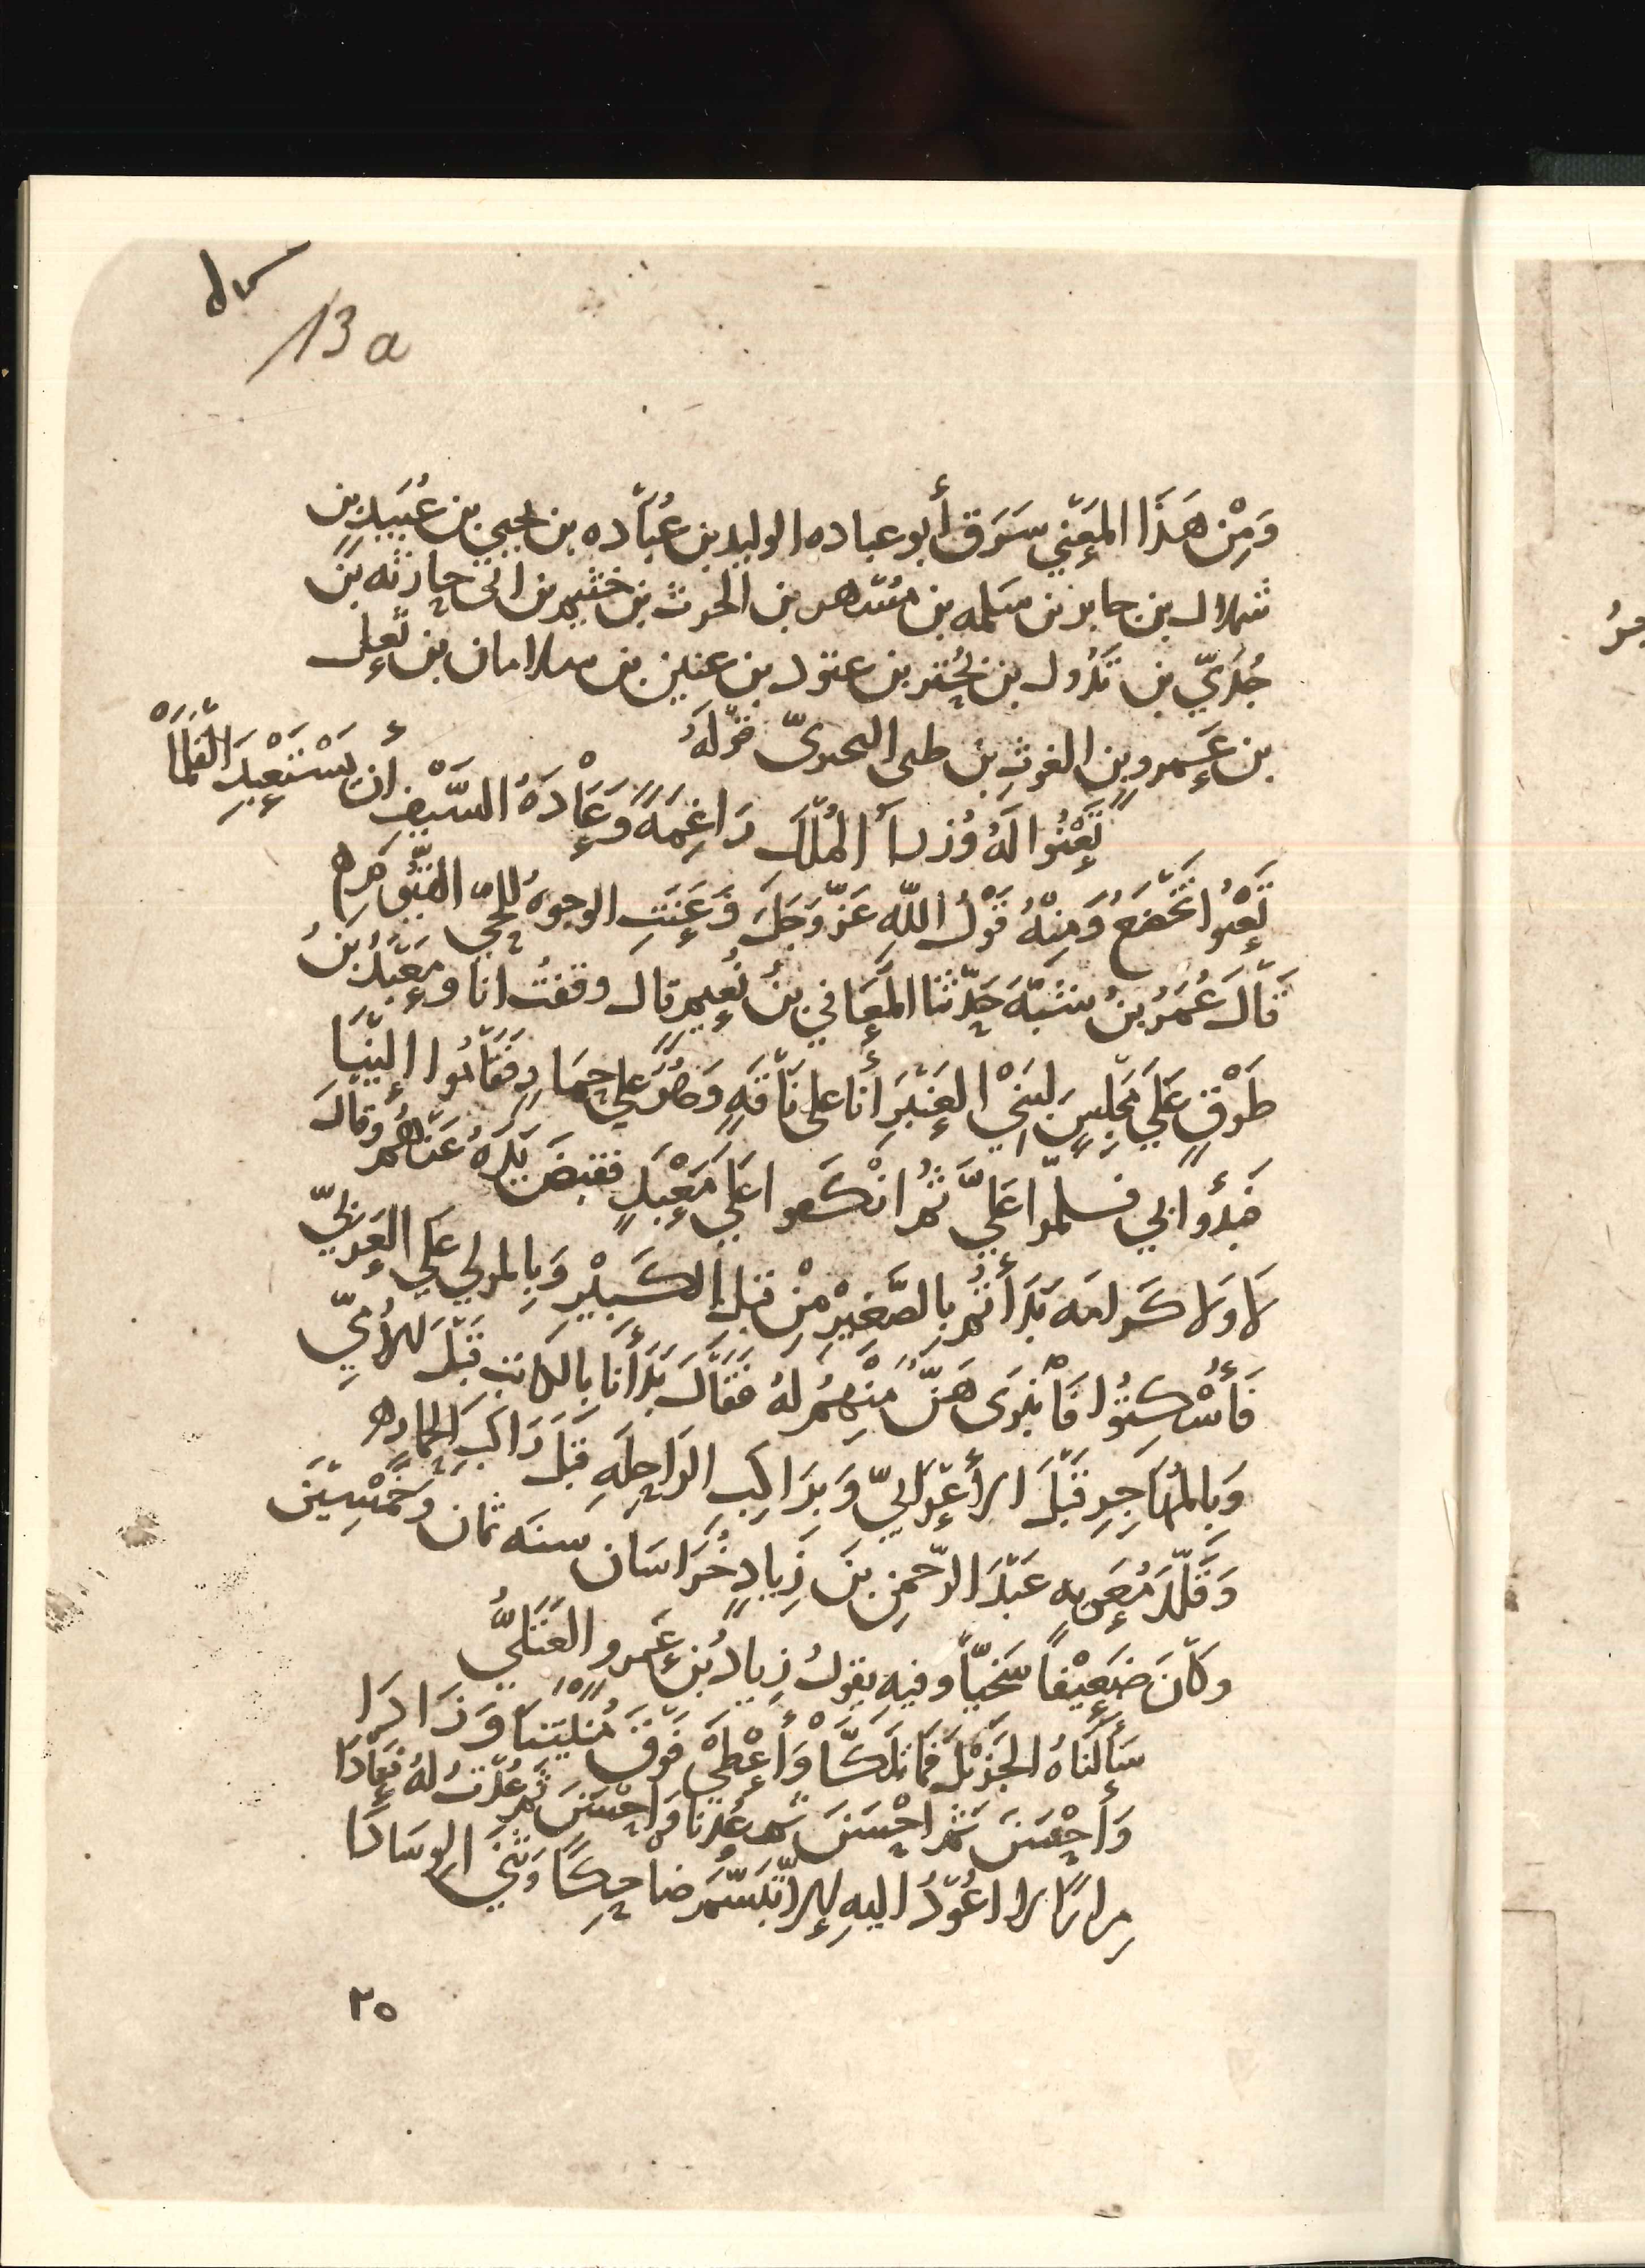 13 a
وَمِنْ هَذَا المَعْنَي سَرَقَ أبو عباده الوليد بن عُبَاده بن يحيي بن عُبَيد بن
شملال بن جابر بن مسلمه بن مسهر بن الحرث بن خثيم بن ابي حارثه بن
جُدَيّ بن تَدُول بن بُحْتر بن عتود بن عنين بن سلامان بن ثُعل
بن عَمرو بن الغوثِ بن طى البحترىّ قَوْلَهُ
تَعْنُوا لَهُ وُزراءُ المُلْكِ رَاغِمَةً وَعَادَةُ السَّيْفِ أن يَسْتَعْبِدَ القَلَمَا
تَعْنُوا تَخْضَعُ وَمِنْهُ قَوْلُ اللّهِ عَزّ وَجَلَّ وَعَنَتِ الوجوهُ لِلحَيّ القَيُّومِ
قَالَ عُمَرُ بنُ شَبّةَ حَدّثنا المُعَافي بنُ نُعَيم قال وقفتُ انا ومَعْبَدُ بنُ
طَوْقٍ عَلَي مَجْلِسٍ لبَنِي العَنْبَرِ أنا على نَاقَةٍ وَهُوَ على حِمَارٍ فَقَامُوا إلَيْنَا
فبدؤا بي فسلمّوا عَلَيَّ ثمَّ انْكَفوا عَلَي مَعْبَدٍ فقبضَ يَدَهُ عَنْهُمْ وقالَ
لَا وَلا كرامه بَدَأتُم بالصَّغِيْرِ مِنْ قَبل الكَبِيْرِ وَبالمولي عَلي العَرَبيّ
فَأُسْكِتُوا فَانْبَرَى هَنٌ مِنْهُمْ لَهُ فَقَالَ بَدَأنَا بالكاتبِ قَبْلَ الأُمِيّ
وَبالمُهَاجِرِ قَبْلَ الأعْرَابِيّ وَبرَاكِبِ الرَاحِلَةِ قَبْلَ رَاكِبِ الحِمَارِ
وَقَلّدَ مُعَويه عَبْدَ الرّحمنِ بنَ زِيادٍ خُرَاسَان سنَه ثمان وخَمْسِيْنَ
وكَانَ ضَعِيْفاً سَخيّاً وفيه يقولُ زِيادُ بن عَمرو العَتَكيُّ
سَأَلنَاهُ الجَزيْلَ فَمَا تَلَكَّا وَأعْطَى فَوْقَ مُنْيتنَا وَزَادَا
وَأحْسَنَ ثمّ احْسَنَ ثم عُدنَا وَاحْسَنَ ثمّ عُدْتُ لهُ فَعَادَا
مراراً لا اعُوْدُ اليهِ إلا تَبَسَّمَ ضاحِكاً وَثنَي الوسَادَا
٢٥